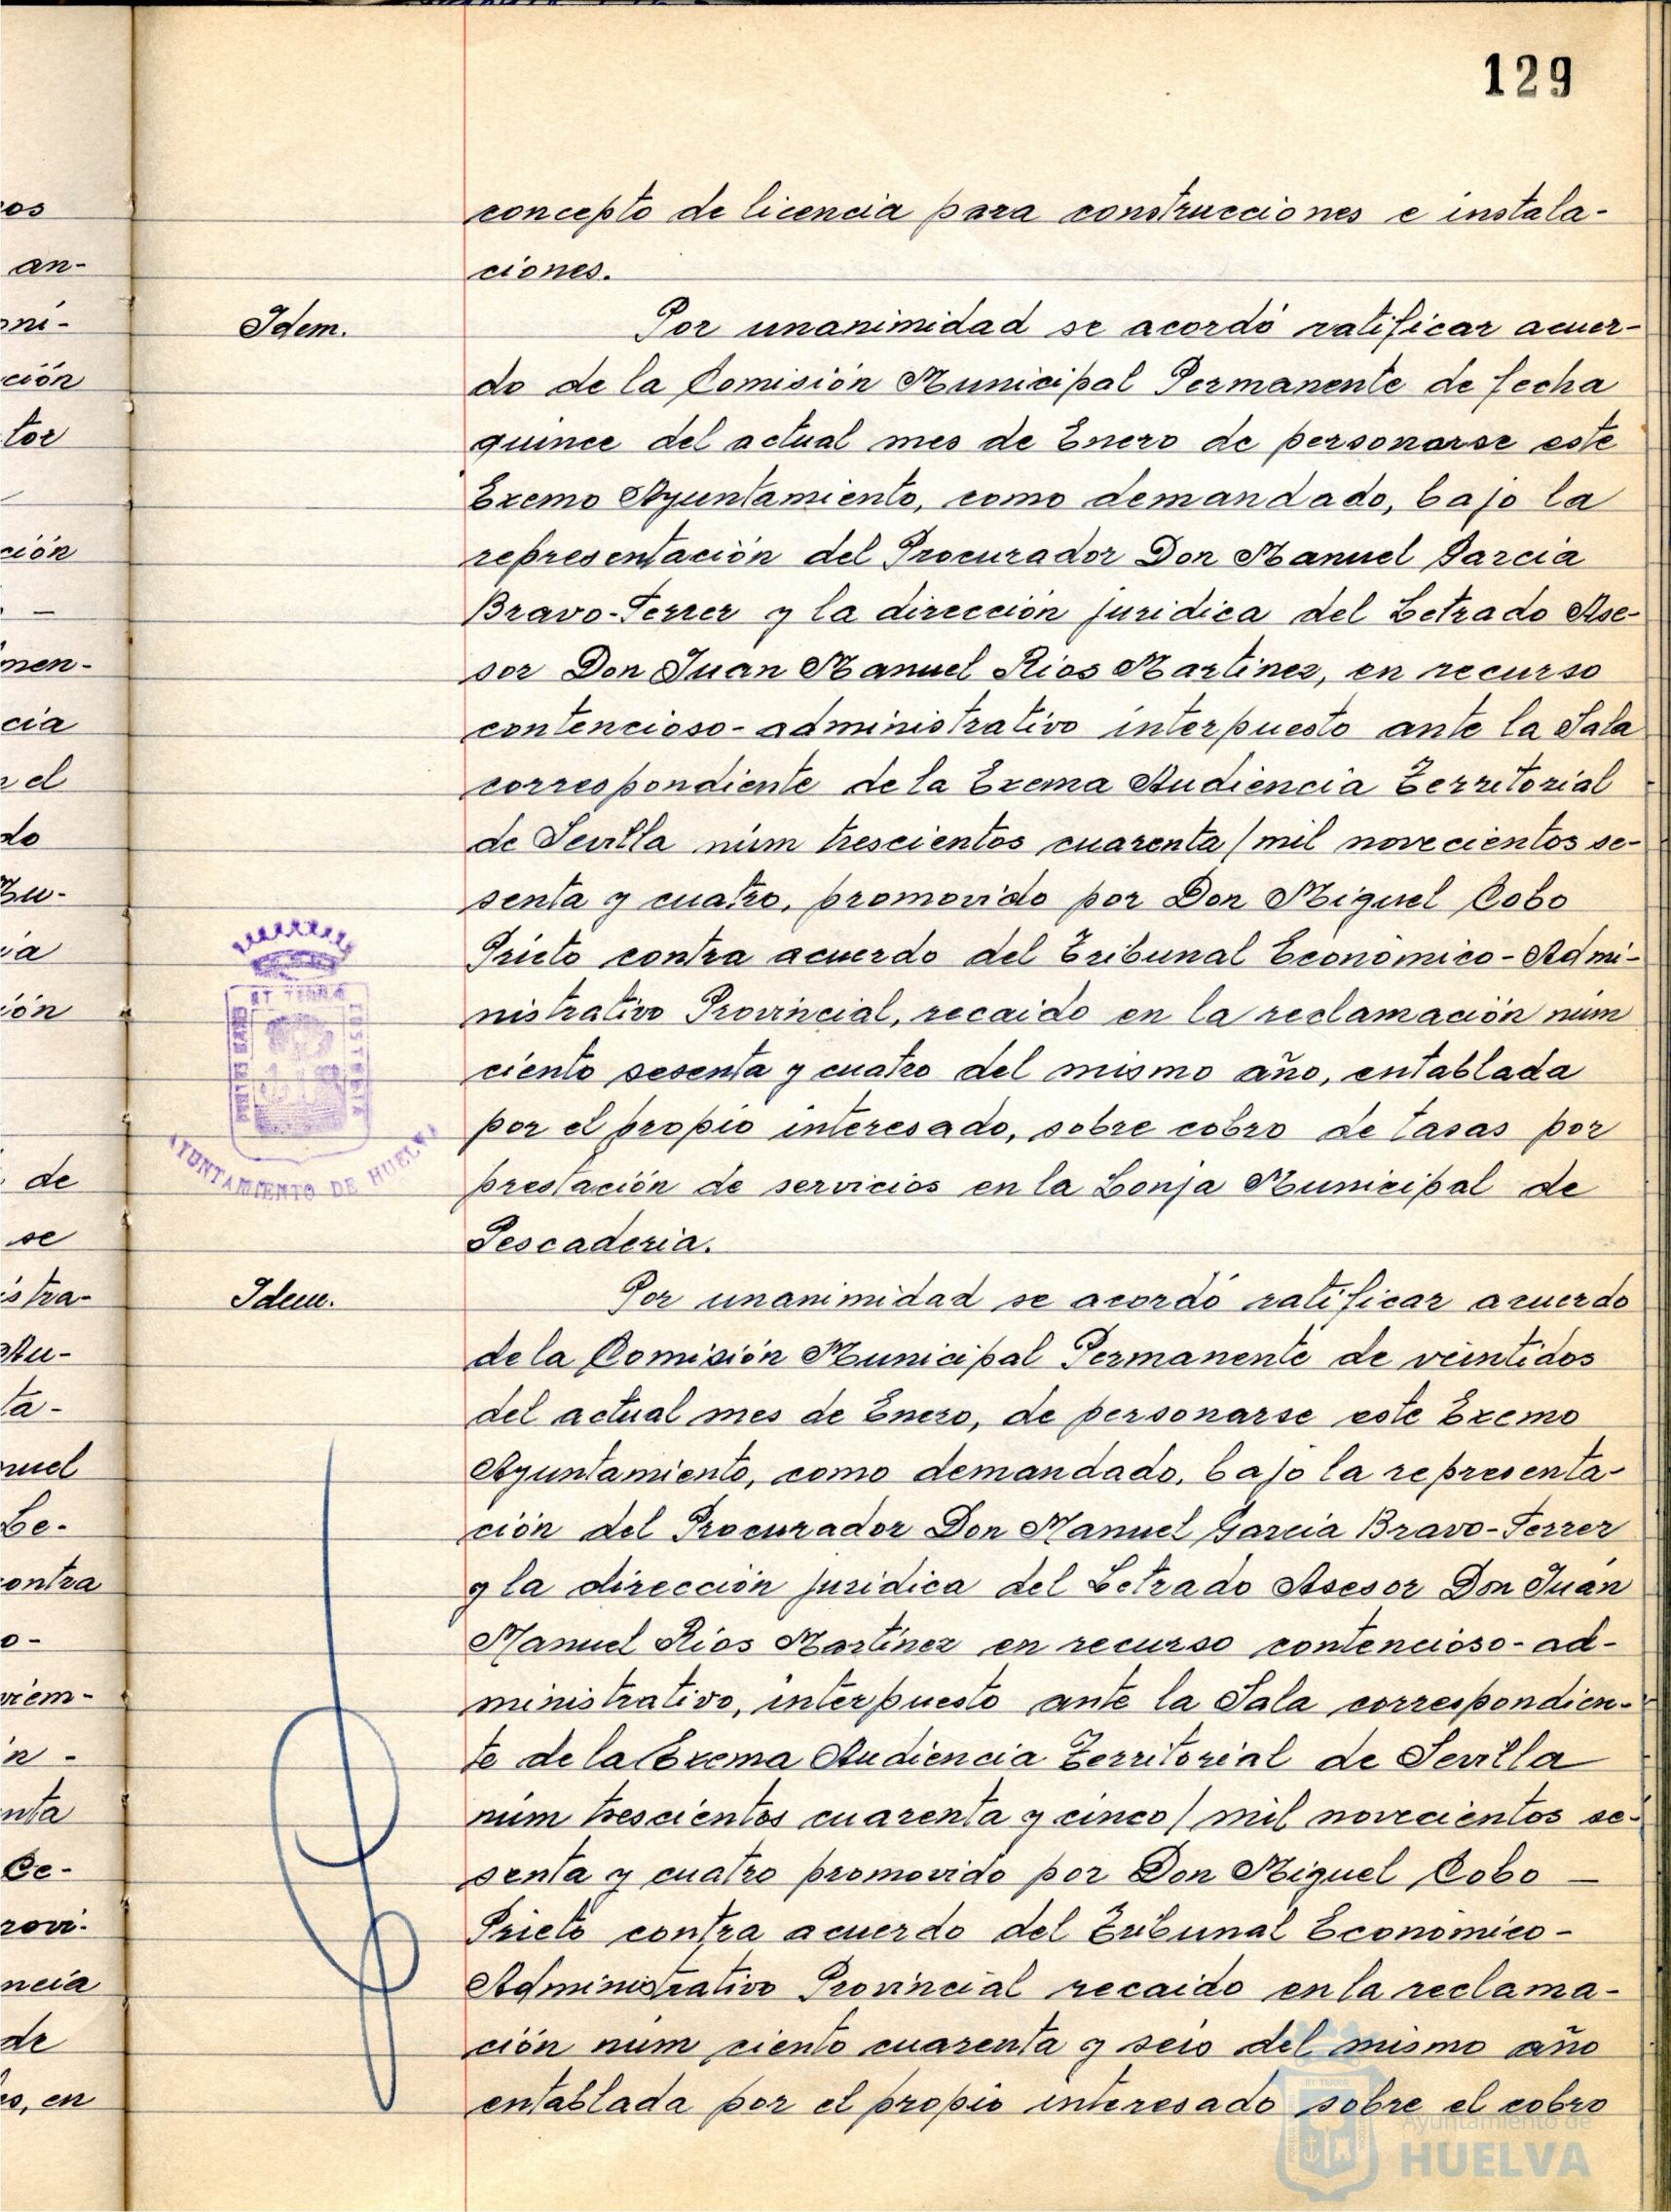 129
concepto de licencia para construcciones e instala-
ciones.
Idem.
Por unanimidad se acordó ratificar acuer-
do de la Comisión Municipal Permanente de fecha
quince del actual mes de Enero de personarse este
Excmo Ayuntamiento, como demandado, bajo la
representación del Procurador Don Manuel Garcia
Bravo-Ferrer y la dirección juridica del Letrado Ase-
sor Don Juan Manuel Rios Martinez, en recurso
contencioso-administrativo interpuesto ante la Sala
correspondiente de la Excma Audiencia Territorial
de Sevilla núm trescientos cuarenta/mil novecientos se-
senta y cuatro, promovido por Don Miguel Cobo
Prieto contra acuerdo del Tribunal Económico-Admi-
nistrativo Provincial, recaido en la reclamación núm
ciento sesenta y cuatro del mismo año, entablada
por el propio interesado, sobre cobro de tasas por
prestación de servicios en la Lonja Municipal de
Pescaderia.
Idem.
Por unanimidad se acordó ratificar acuerdo
de la Comisión Municipal Permanente de veintidos
del actual mes de Enero, de personarse este Excmo
Ayuntamiento, como demandado, bajo la representa-
ción del Procurador Don Manuel Garcia Bravo-Ferrer
y la dirección juridica del Letrado Asesor Don Juan
Manuel Rios Martinez en recurso contencioso-ad-
ministrativo, interpuesto ante la Sala correspondien-
te de la Excma Audiencia Territorial de Sevilla
núm trescientos cuarenta y cinco/mil novecientos se-
senta y cuatro promovido por Don Miguel Cobo
Prieto contra acuerdo del Tribunal Económico-
Administrativo Provincial recaido en la reclama-
ción num ciento cuarenta y seis del mismo año
entablada por el propio interesado sobre el cobro
AYUNTAMIENTO DE HUELVA
Ayuntamiento de
HUELVA
os
an-
ni-
ción
tor
ción
men-
cia
el
do
ia
ión
de
se
istra-
ta-
nuel
Le-
contra
o-
viem-
n-
nta
Ce-
rovi-
ncia
de
en